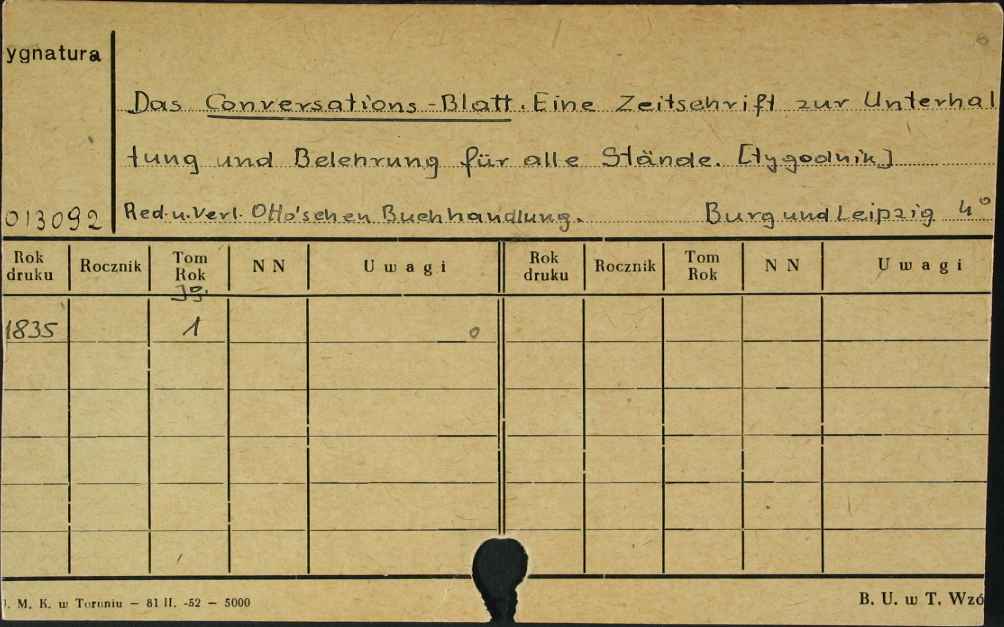 ygnatura
Das Conversations-Blatt. Eine Zeitschrift zur Unterhal
tung und Belehrung für alle Stände. [tygodnik]
013092
Red. u. Verl. Otto'schen Buchhandlung. Burg und Leipzig 4°
Rok druku Rocznik Tom Rok NN Uwagi Rok druku Rocznik Tom Rok NN Uwagi
Jg.
1835 1 0
. M. K. w Toruniu — 81 II. -52 — 5000 B. U. w T. Wzó